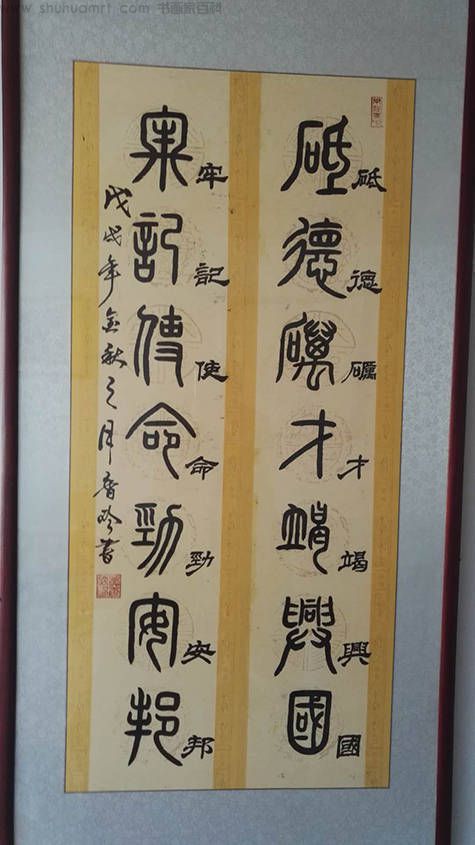 www.shuhuamrt.com 书画家百科
砥德礪才竭興國
砥德礪才竭興國
牢記使命勁安邦
牢記使命勁安邦
戊戌年金秋之月香吟書